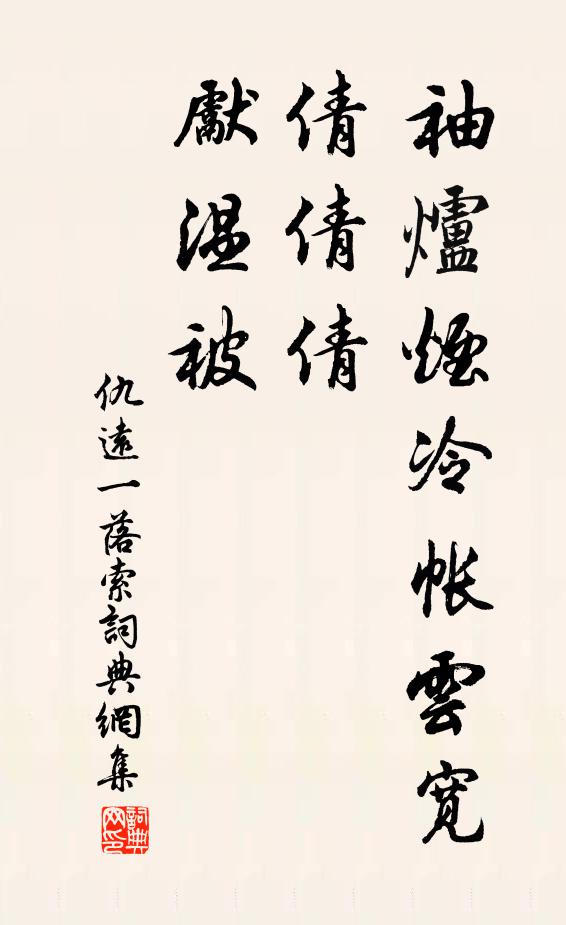 袖爐煙冷帳雲寬
倩倩倩
獻溫被
仇遠一落索詞典網集
詞典网印